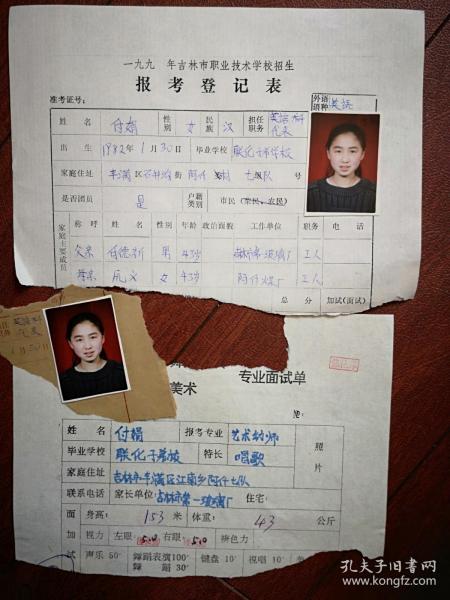 一九九 年吉林市职业技术学校招生
报考登记表
准考证号： 外语语种 英语
姓名 付娟 性别 女 民族 汉 担任职务 英语科代表
出生 1982年1月30日 毕业学校 联化子弟学校
家庭住址 丰满区 七队 号
是否团员 是 户籍类别 市民(农民)
家庭主要成员 称呼 姓名 性别 年龄 政治面貌 工作单位 职务 电话
父亲 付德新 男 43岁 工人
母亲 女 43岁 工人
总分 加试(面试)
英语科
代表
美术 专业面试单
姓名 付娟 报考专业 艺术幼师 照片
毕业学校 联化子弟校 特长 唱歌
家庭住址 吉林市丰满区江南乡阿什七队
联系电话 家长单位：吉林市第一玻璃厂 住宅：
面 身高：153 米 体重：43 公斤
加 视力 左眼：5.0 右眼：5.0 辨色力
试 声乐50' 舞蹈表演100' 键盘10' 视唱10'
舞蹈30'
孔夫子旧书网